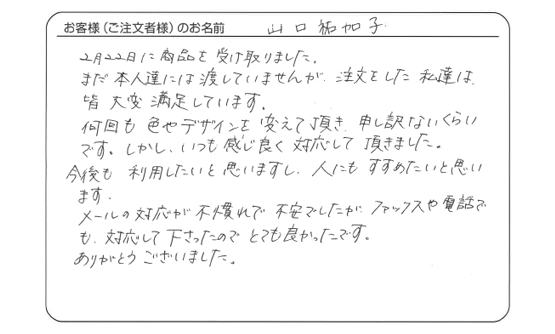 お客様(ご注文者様)のお名前 山口祐加子
2月22日に商品を受け取りました。
まだ本人達には渡していませんが、注文をした私達は、
皆大変満足しています。
何回も色やデザインを変えて頂き、申し訳ないくらい
です。しかし、いつも感じ良く対応して頂きました。
今後も利用したいと思いますし、人にもすすめたいと思い
ます。
メールの対応が不慣れで不安でしたが、ファックスや電話で
も、対応して下さったのでとても良かったです。
ありがとうございました。